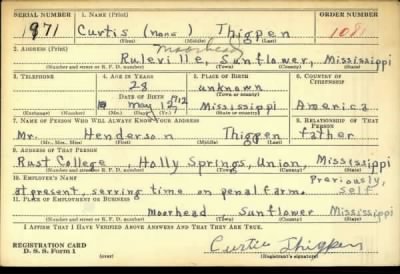 SERIAL NUMBER 1. NAME (Print) ORDER NUMBER
1971 Curtis (none) Thigpen 1081
(First) (Middle) (Last)
2. ADDRESS (Print) Moorhead
Ruleville, Sunflower, Mississippi
(Number and street or R. F. D. number) (Town) (County) (State)
3. TELEPHONE 4. AGE IN YEARS 5. PLACE OF BIRTH 6. COUNTRY OF CITIZENSHIP
28 unknown
(Town or county)
DATE OF BIRTH
May 12 1912 Mississippi America
(Exchange) (Number) (Mo.) (Day) (Yr.) (State or country)
7. NAME OF PERSON WHO WILL ALWAYS KNOW YOUR ADDRESS 8. RELATIONSHIP OF THAT PERSON
Mr. Henderson Thigpen father
(Mr., Mrs., Miss) (First) (Middle) (Last)
9. ADDRESS OF THAT PERSON
Rust College, Holly Springs, Union, Mississippi
(Number and street or R. F. D. number) (Town) (County) (State)
10. EMPLOYER'S NAME Previously,
at present, serving time on penal farm. self
11. PLACE OF EMPLOYMENT OR BUSINESS
Moorhead Sunflower Mississippi
(Number and street or R. F. D. number) (Town) (County) (State)
I AFFIRM THAT I HAVE VERIFIED ABOVE ANSWERS AND THAT THEY ARE TRUE.
REGISTRATION CARD
D. S. S. Form 1 Curtis Thigpen
(Registrant's signature)